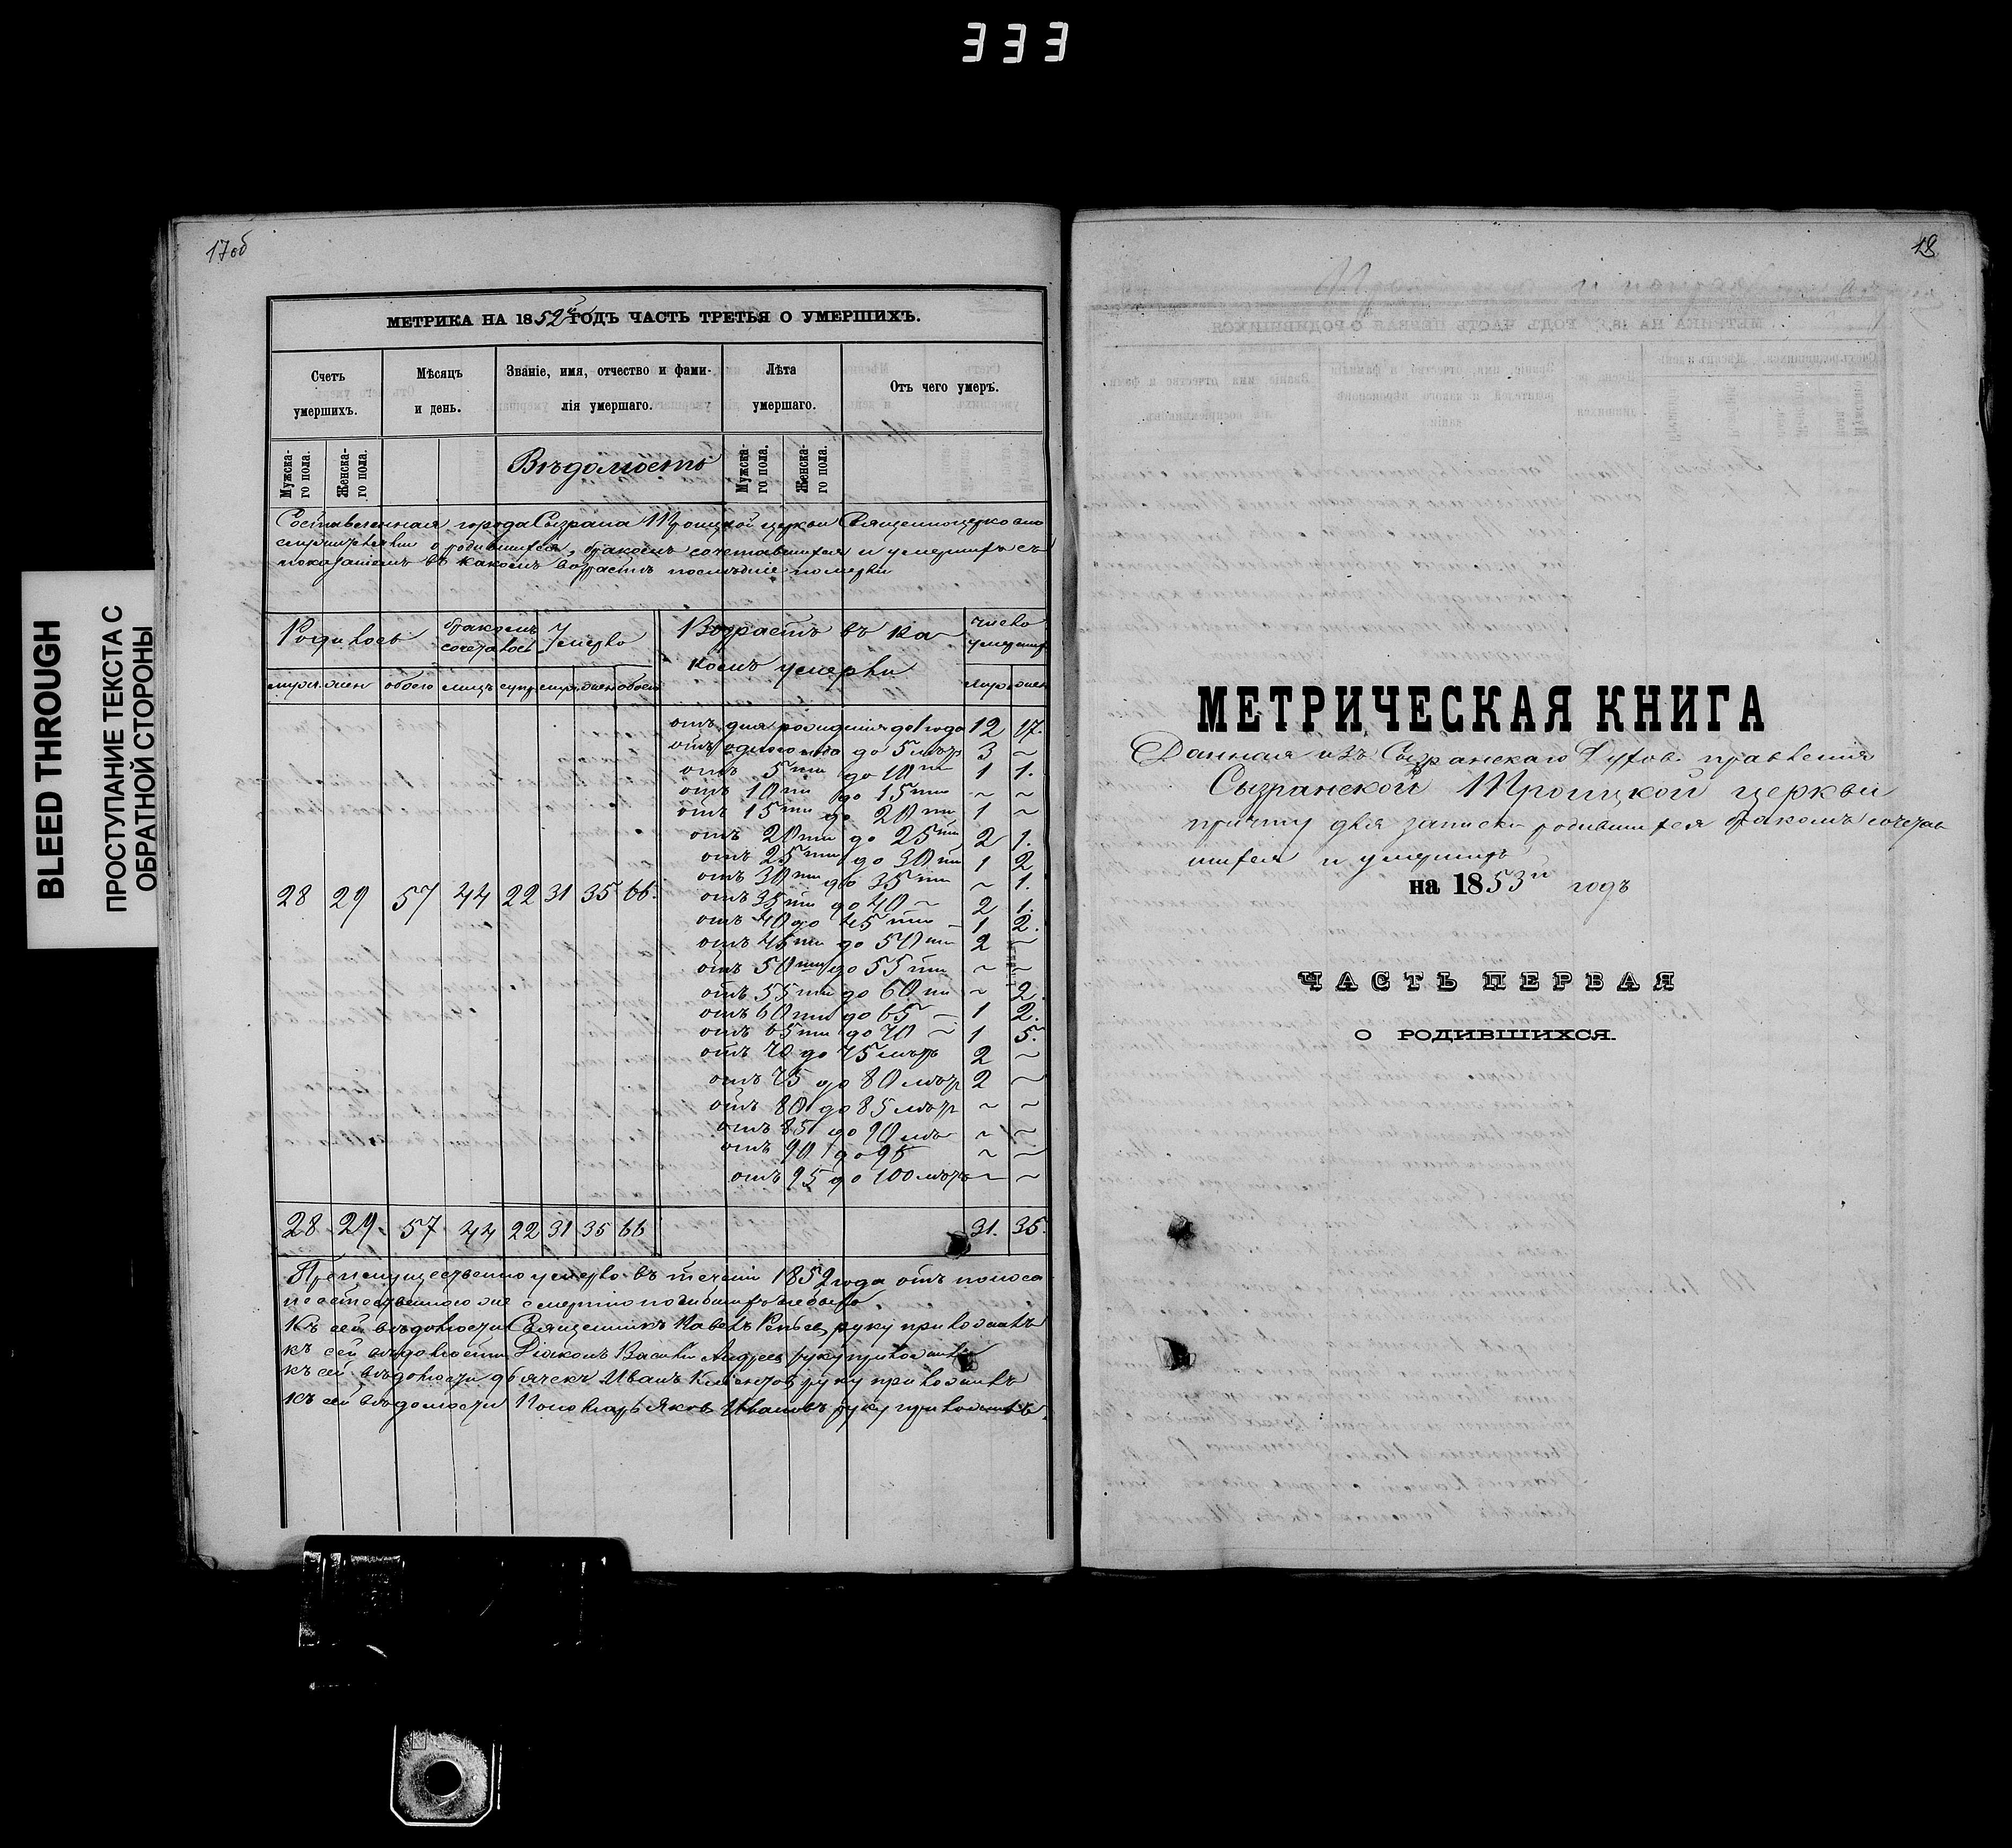 333
BLEED THROUGH
ПРОСТУПАНИЕ ТЕКСТА С
ОБРАТНОЙ СТОРОНЫ
17об
МЕТРИКА НА 1852й ГОДЪ ЧАСТЬ ТРЕТЬЯ О УМЕРШИХЪ.
Счетъ умершихъ. Мѣсяцъ и день. Званіе, имя, отчество и фами-лія умершаго. Лѣта умершаго. Отъ чего умеръ.
Мужска-го пола. Женска-го пола. Вѣдомость Мужска-го пола. Женска-го пола.
Составленная города Сызрана Троицкой церкви Священноцерковно
служителями о родившихся, бракомъ сочетавшихся и умершихъ съ
показаніемъ въ какомъ возрастѣ послѣдніе померли
Родилось бракомъ сочеталось Умерло Возрастъ въ ка- число умерших
комъ умерли
муж. жен обоего лицъ супр. муж. жен обоего муж. жен
отъ дня рождения до 1 года 12 17.
отъ одного года до 5 лѣтъ 3 ~
отъ 5ти до 10ти 1 1.
отъ 10ти до 15ти ~ ~
отъ 15ти до 20ти 1 ~
отъ 20ти до 25ти 2 1.
отъ 25ти до 30ти 1 2
отъ 30ти до 35ти ~ 1.
28 29 57 44 22 31 35 66.
отъ 35ти до 40 ~ 2 1.
отъ 40 до 45ти – 1 2.
отъ 45ти до 50ти 2 ~
отъ 50ти до 55ти ~ ~
отъ 55ти до 60ти ~ 2.
отъ 60ти до 65 – 1 2.
отъ 65ти до 70 ~ 1 5.
отъ 70 до 75 лѣтъ 2 ~
отъ 75 до 80 лѣтъ 2 ~
отъ 80 до 85 лѣтъ ~ ~
отъ 85 до 90 лѣт ~ ~
отъ 90 до 95 ~ ~
отъ 95 до 100 лѣтъ ~ ~
28 29. 57 44 22 31 35 66 31. 35.
Преимущественно умерло въ теченіи 1852 года отъ поноса
неестественною же смертію
Къ сей вѣдомости Священникъ Павелъ руку приложилъ
къ сей вѣдомости Діаконъ Василій Андреев руку приложилъ
къ сей вѣдомости дьячекъ Иванъ руку приложилъ
къ сей вѣдомости Пономарь Яковъ Ивановъ руку приложилъ.
18
МЕТРИЧЕСКАЯ КНИГА
Данная изъ Сызранскаго Духов. правленія
Сызранской Троицкой церкви
причту для записки родившихся бракомъ сочетав
шихся и умершихъ
на 1853й годъ
ЧАСТЬ ПЕРВАЯ
О РОДИВШИХСЯ.